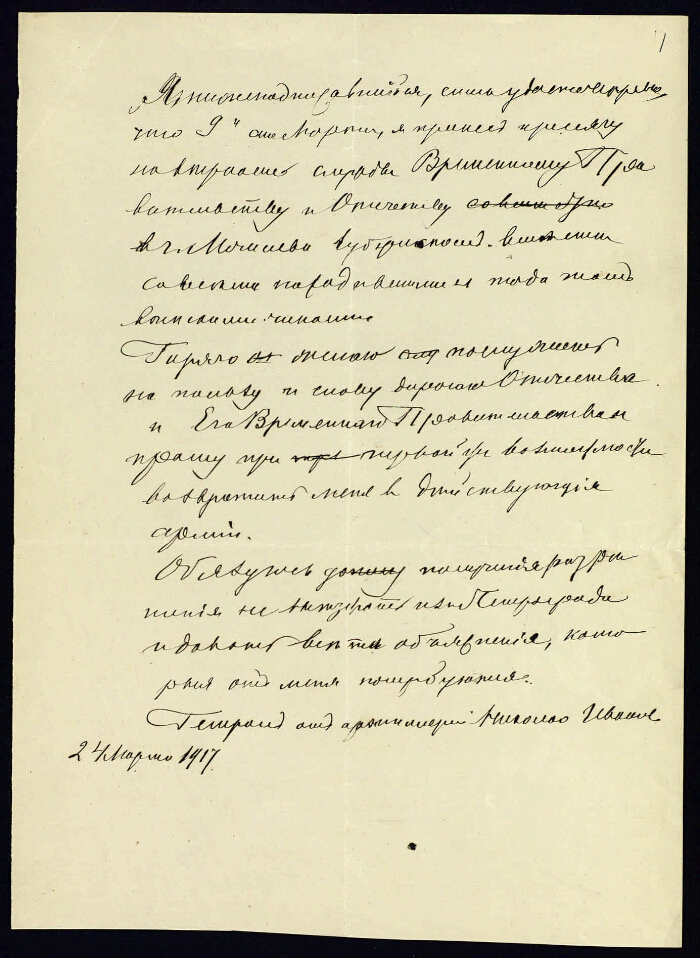 1
Я, нижеподписавшийся, симъ удостоверяю,
что 9го Марта, я принесъ присягу
на верность службы Временному Пра
вительству и Отечеству
въ г. Могилеве губернскомъ вместе
со всеми находившимися тогда тамъ
воинскими чинами.
Горячо желаю послужить
на пользу и славу дорогого Отечества
и Его Временнаго Правительства и
прошу при первой же возможности
возвратить меня въ действующую
армію.
Обязуюсь до получения разре
шенія не выезжать изъ Петрограда
и давать все те объясненія, кото
рыя отъ меня потребуются.
Генералъ отъ артиллеріи Николай Ивановъ
24 Марта 1917